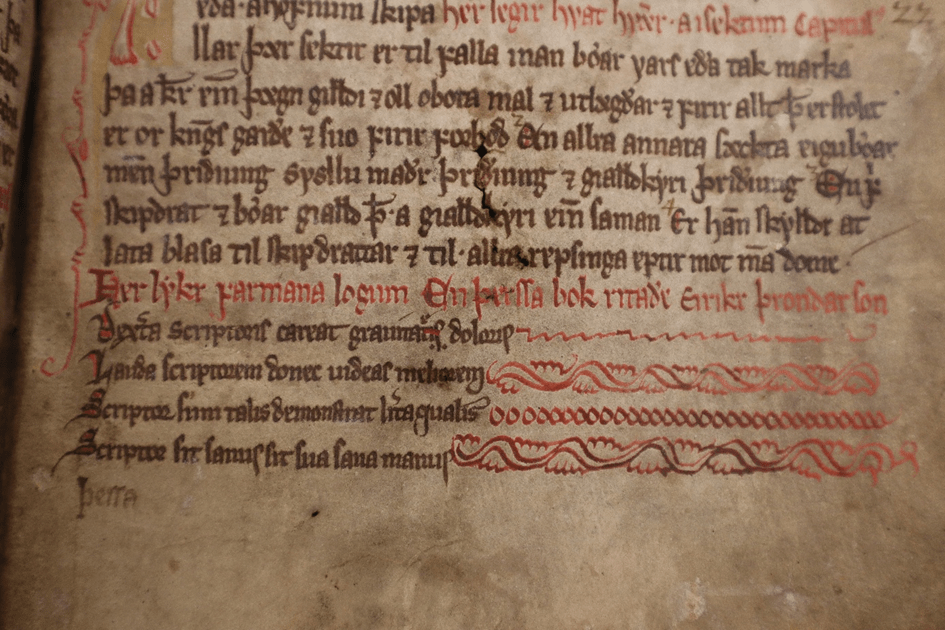 eda a hofnum skipa her segir hvat hyrer a i sektum Capitul 22
llar þær sektir er til falla man bǿar yars eda tak marka
þa a kr eín þægn gilldi ⁊ oll obota mal ⁊ utlægdar ⁊ firir allt þ er stolet
er or kngs garde ⁊ suo firir forbod En allra annara sækta eigu bǿar
menn þridiung Sysllu madr þridiung ⁊ gialldkyri þridiung En
skipdrat ⁊ bǿar gialld þ a gialldkyri ein saman Er han skylldr at
lata blasa til skipdrattar ⁊ til allra repsinga eptir mot ma dome
Her lykr farmana logum En þessa bok ritade Eirikr þrondar son
Dextra scriptoris careat grauitatis doloris
Lauda scriptorem donec uideas meliorem
Scriptor sum talis demonstrat lra qualis
Scriptor sit sanus sit sua sana manus
þessa